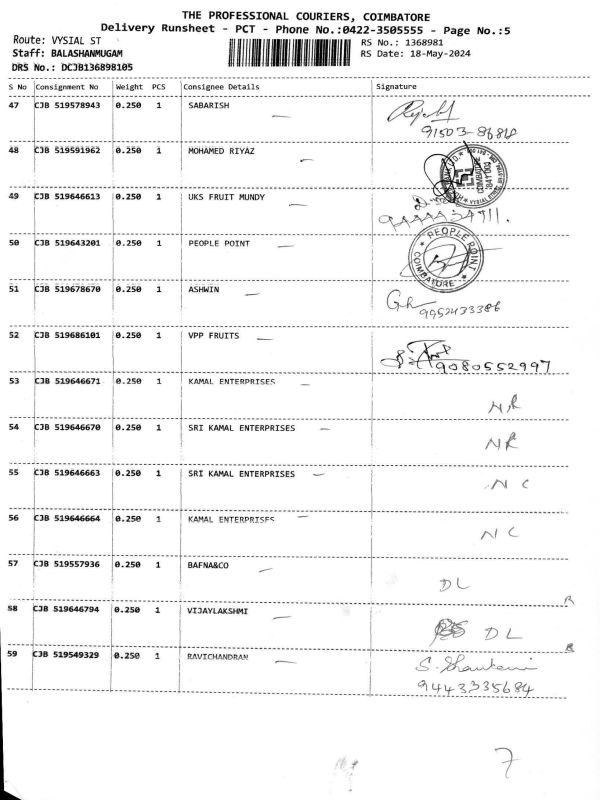 THE PROFESSIONAL COURIERS, COIMBATORE
Delivery Runsheet - PCT - Phone No.:0422-3505555 - Page No.:5
Route: VYSIAL ST RS No.: 1368981
Staff: BALASHANMUGAM RS Date: 18-May-2024
DRS No.: DCJB136898105
S No Consignment No Weight PCS Consignee Details Signature
47 CJB 519578943 0.250 1 SABARISH
91503-8684
48 CJB 519591962 0.250 1 MOHAMED RIYAZ
49 CJB 519646613 0.250 1 UKS FRUIT MUNDY
50 CJB 519643201 0.250 1 PEOPLE POINT
PEOPLE POINT
COIMBATORE
51 CJB 519678670 0.250 1 ASHWIN
9952433386
52 CJB 519686101 0.250 1 VPP FRUITS
9080552997
53 CJB 519646671 0.250 1 KAMAL ENTERPRISES
NR
54 CJB 519646670 0.250 1 SRI KAMAL ENTERPRISES
NR
55 CJB 519646663 0.250 1 SRI KAMAL ENTERPRISES
NC
56 CJB 519646664 0.250 1 KAMAL ENTERPRISES
NC
57 CJB 519557936 0.250 1 BAFNA&CO
DL
R
58 CJB 519646794 0.250 1 VIJAYLAKSHMI
DL
R
59 CJB 519549329 0.250 1 RAVICHANDRAN
9443335684
7